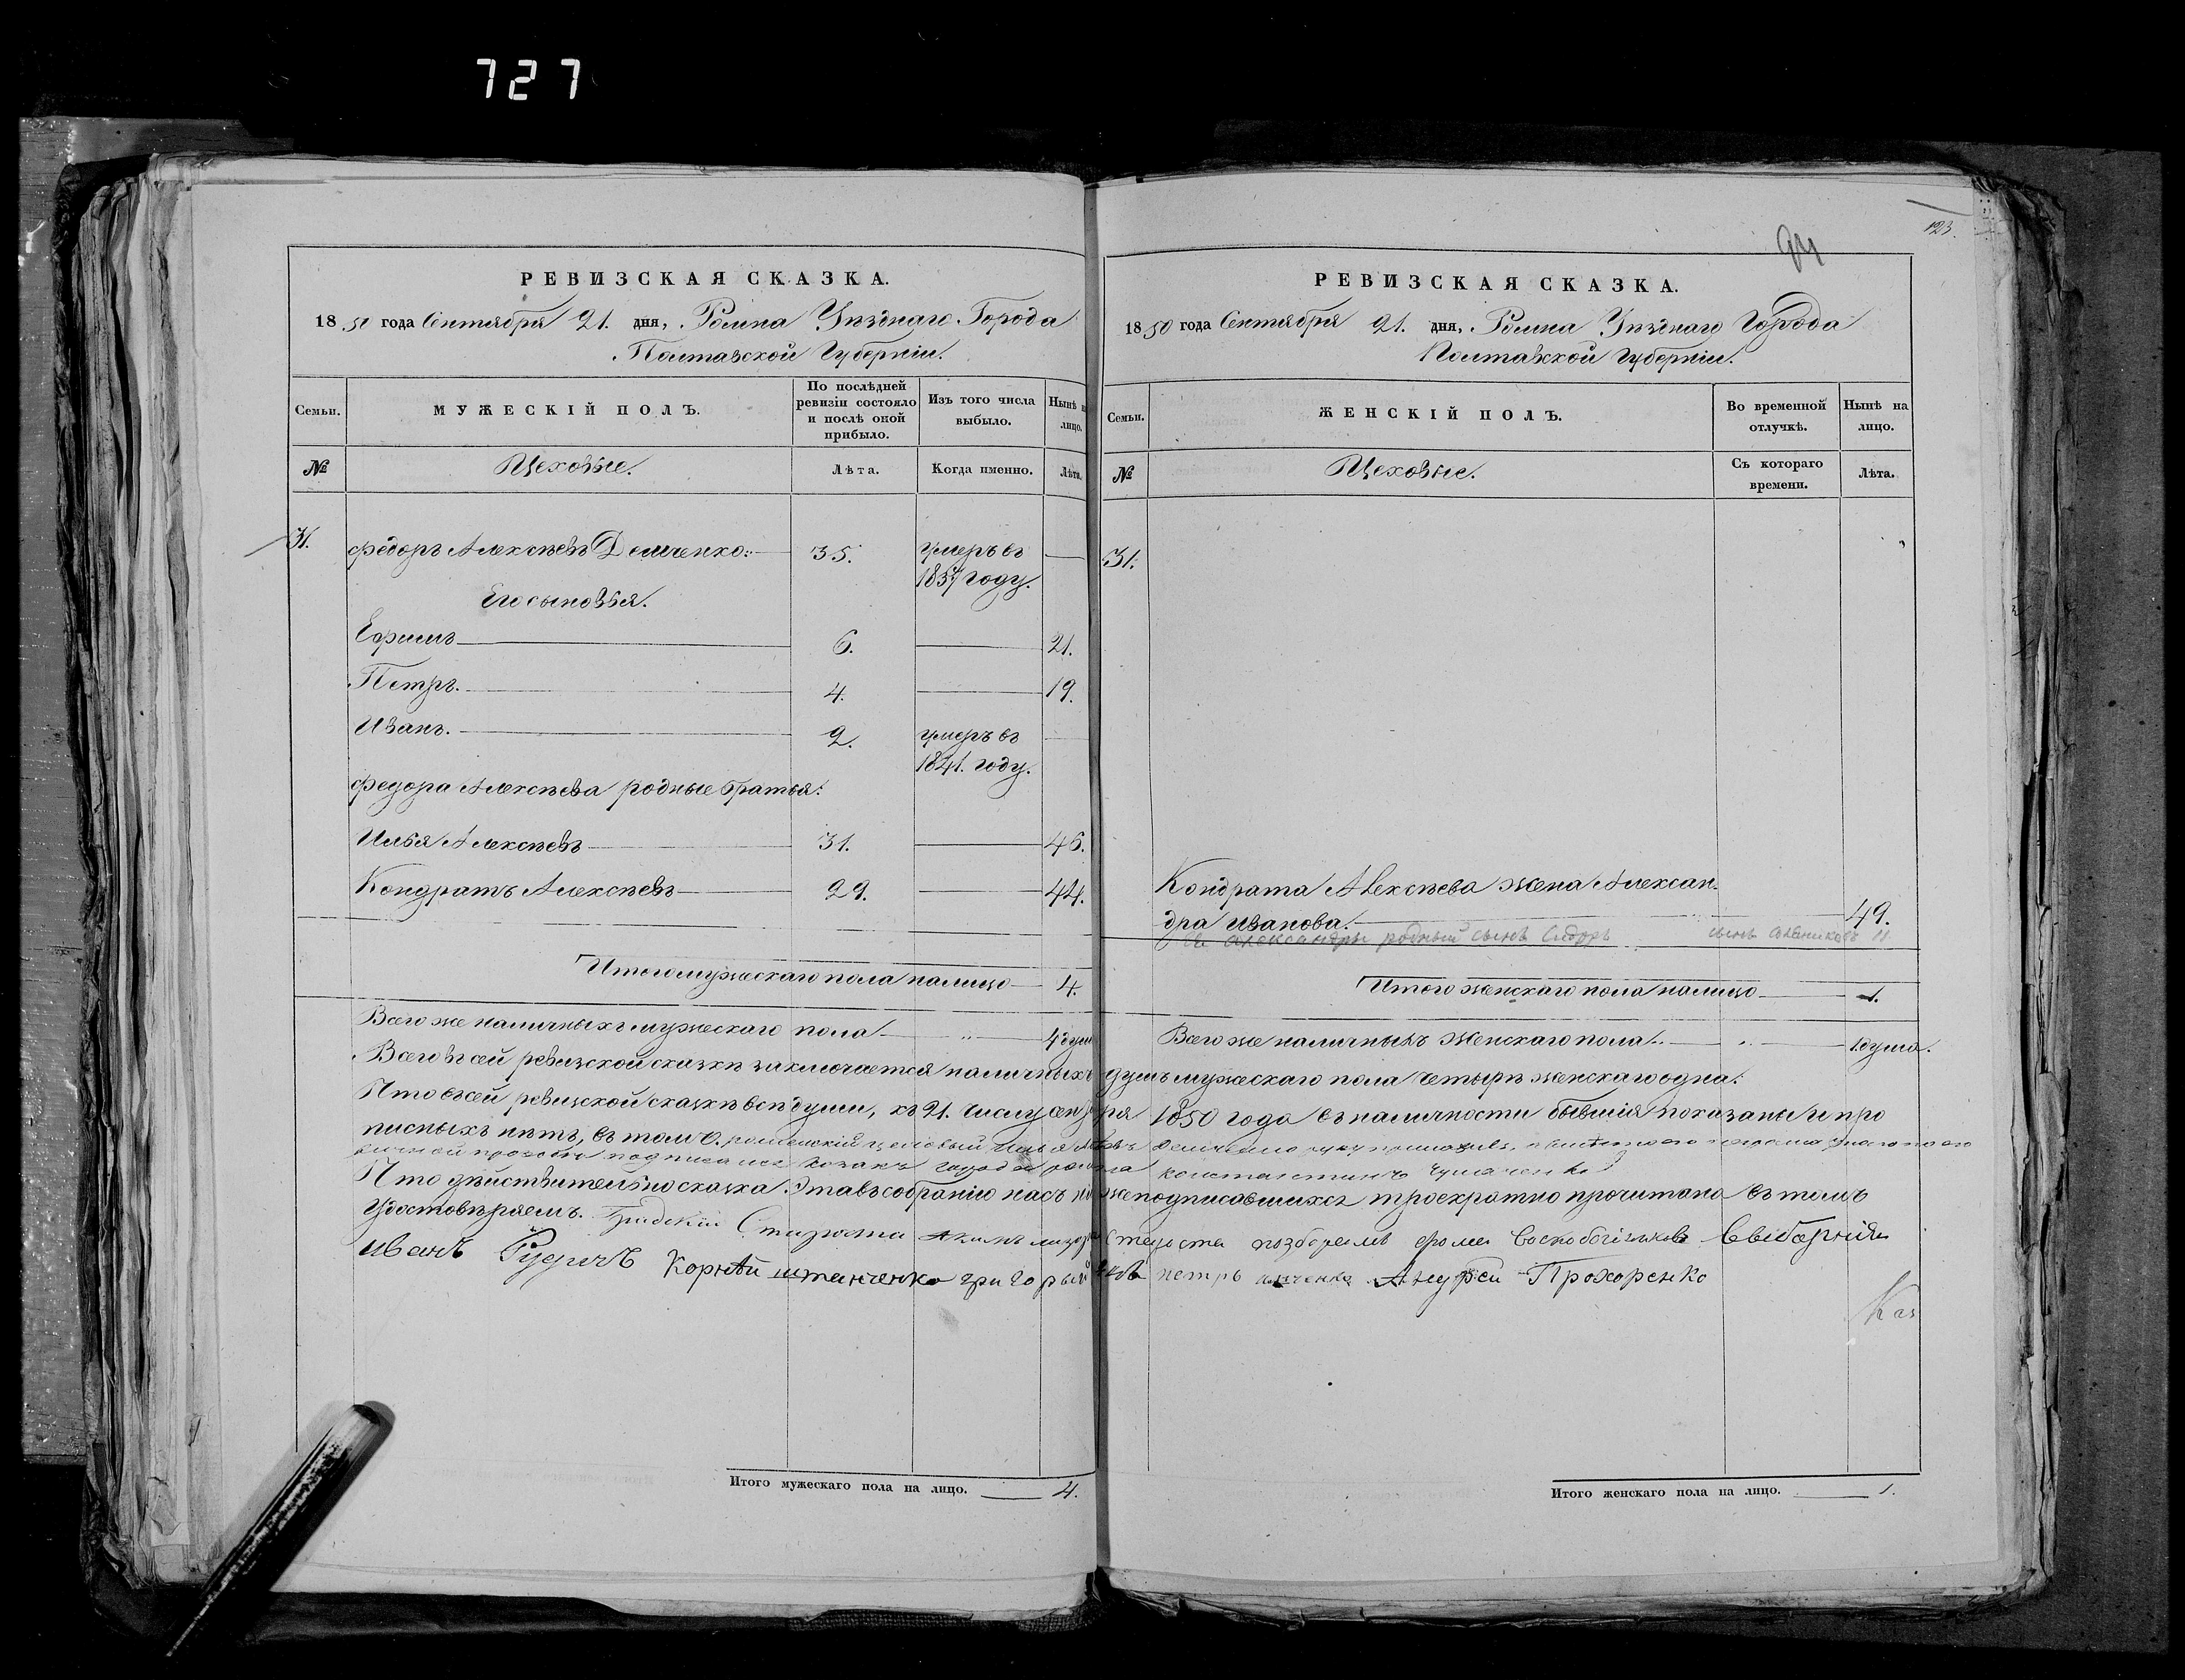 727
РЕВИЗСКАЯ СКАЗКА.
1850 года Сентября 21. дня, Ромна Уѣзднаго Города
Полтавской Губерніи.
Семьи.
МУЖЕСКІЙ ПОЛЪ.
По послѣдней ревизіи состояло и послѣ оной прибыло.
Изъ того числа выбыло.
Нынѣ на лицо.
№
Цеховые.
Лѣта.
Когда именно.
Лѣта.
31. Федоръ Алексѣевъ Демченко 35. умеръ въ
1837 году.
Его сыновья.
Ефимъ 6. 21.
Петръ. 4. 19.
Иванъ. 2. умеръ въ
1841. году.
Федора Алексѣева родные братья:
Илья Алексѣевъ 31. 46.
Кондратъ Алексѣевъ 29. 44.
Итого мужескаго пола налицо 4.
Всего же наличныхъ мужескаго пола 4 душ
123.
94
РЕВИЗСКАЯ СКАЗКА.
1850 года Сентября 21. дня, Ромна Уѣзднаго Города
Полтавской Губерніи.
Семьи.
ЖЕНСКІЙ ПОЛЪ.
Во временной отлучкѣ.
Нынѣ на лицо.
№
Цеховые.
Съ котораго времени.
Лѣта.
31.
Кондрата Алексѣева жена Алексан-
дра Иванова. 49.
Александры родный сынъ Сидоръ
Итого женскаго пола налицо 1.
Всего же наличныхъ женскаго пола 1 душа.
Всего въ сей ревизской сказкѣ заключается наличныхъ душъ мужескаго пола четырѣ женскаго одна.
Что въ сей ревизской сказкѣ всѣ души, къ 21. числу сентября 1850 года въ наличности бывшія показаны и про
писныхъ нѣтъ, въ томъ роменскій цеховый Илья Демченко руку приложилъ, а вмѣсто его
личной прозбѣ подписался козакъ города Ромна Константинъ
Что дѣйствительно сказка эта въ собраніи насъ нижеподписавшихся троекратно прочитана въ томъ
Удостовѣряемъ. Градскій Староста Староста Фома
Иванъ Рудичъ Корнѣй Григорый Петръ Андрей Прохоренко
Каз
Итого мужескаго пола на лицо. 4.
Итого женскаго пола на лицо. 1.